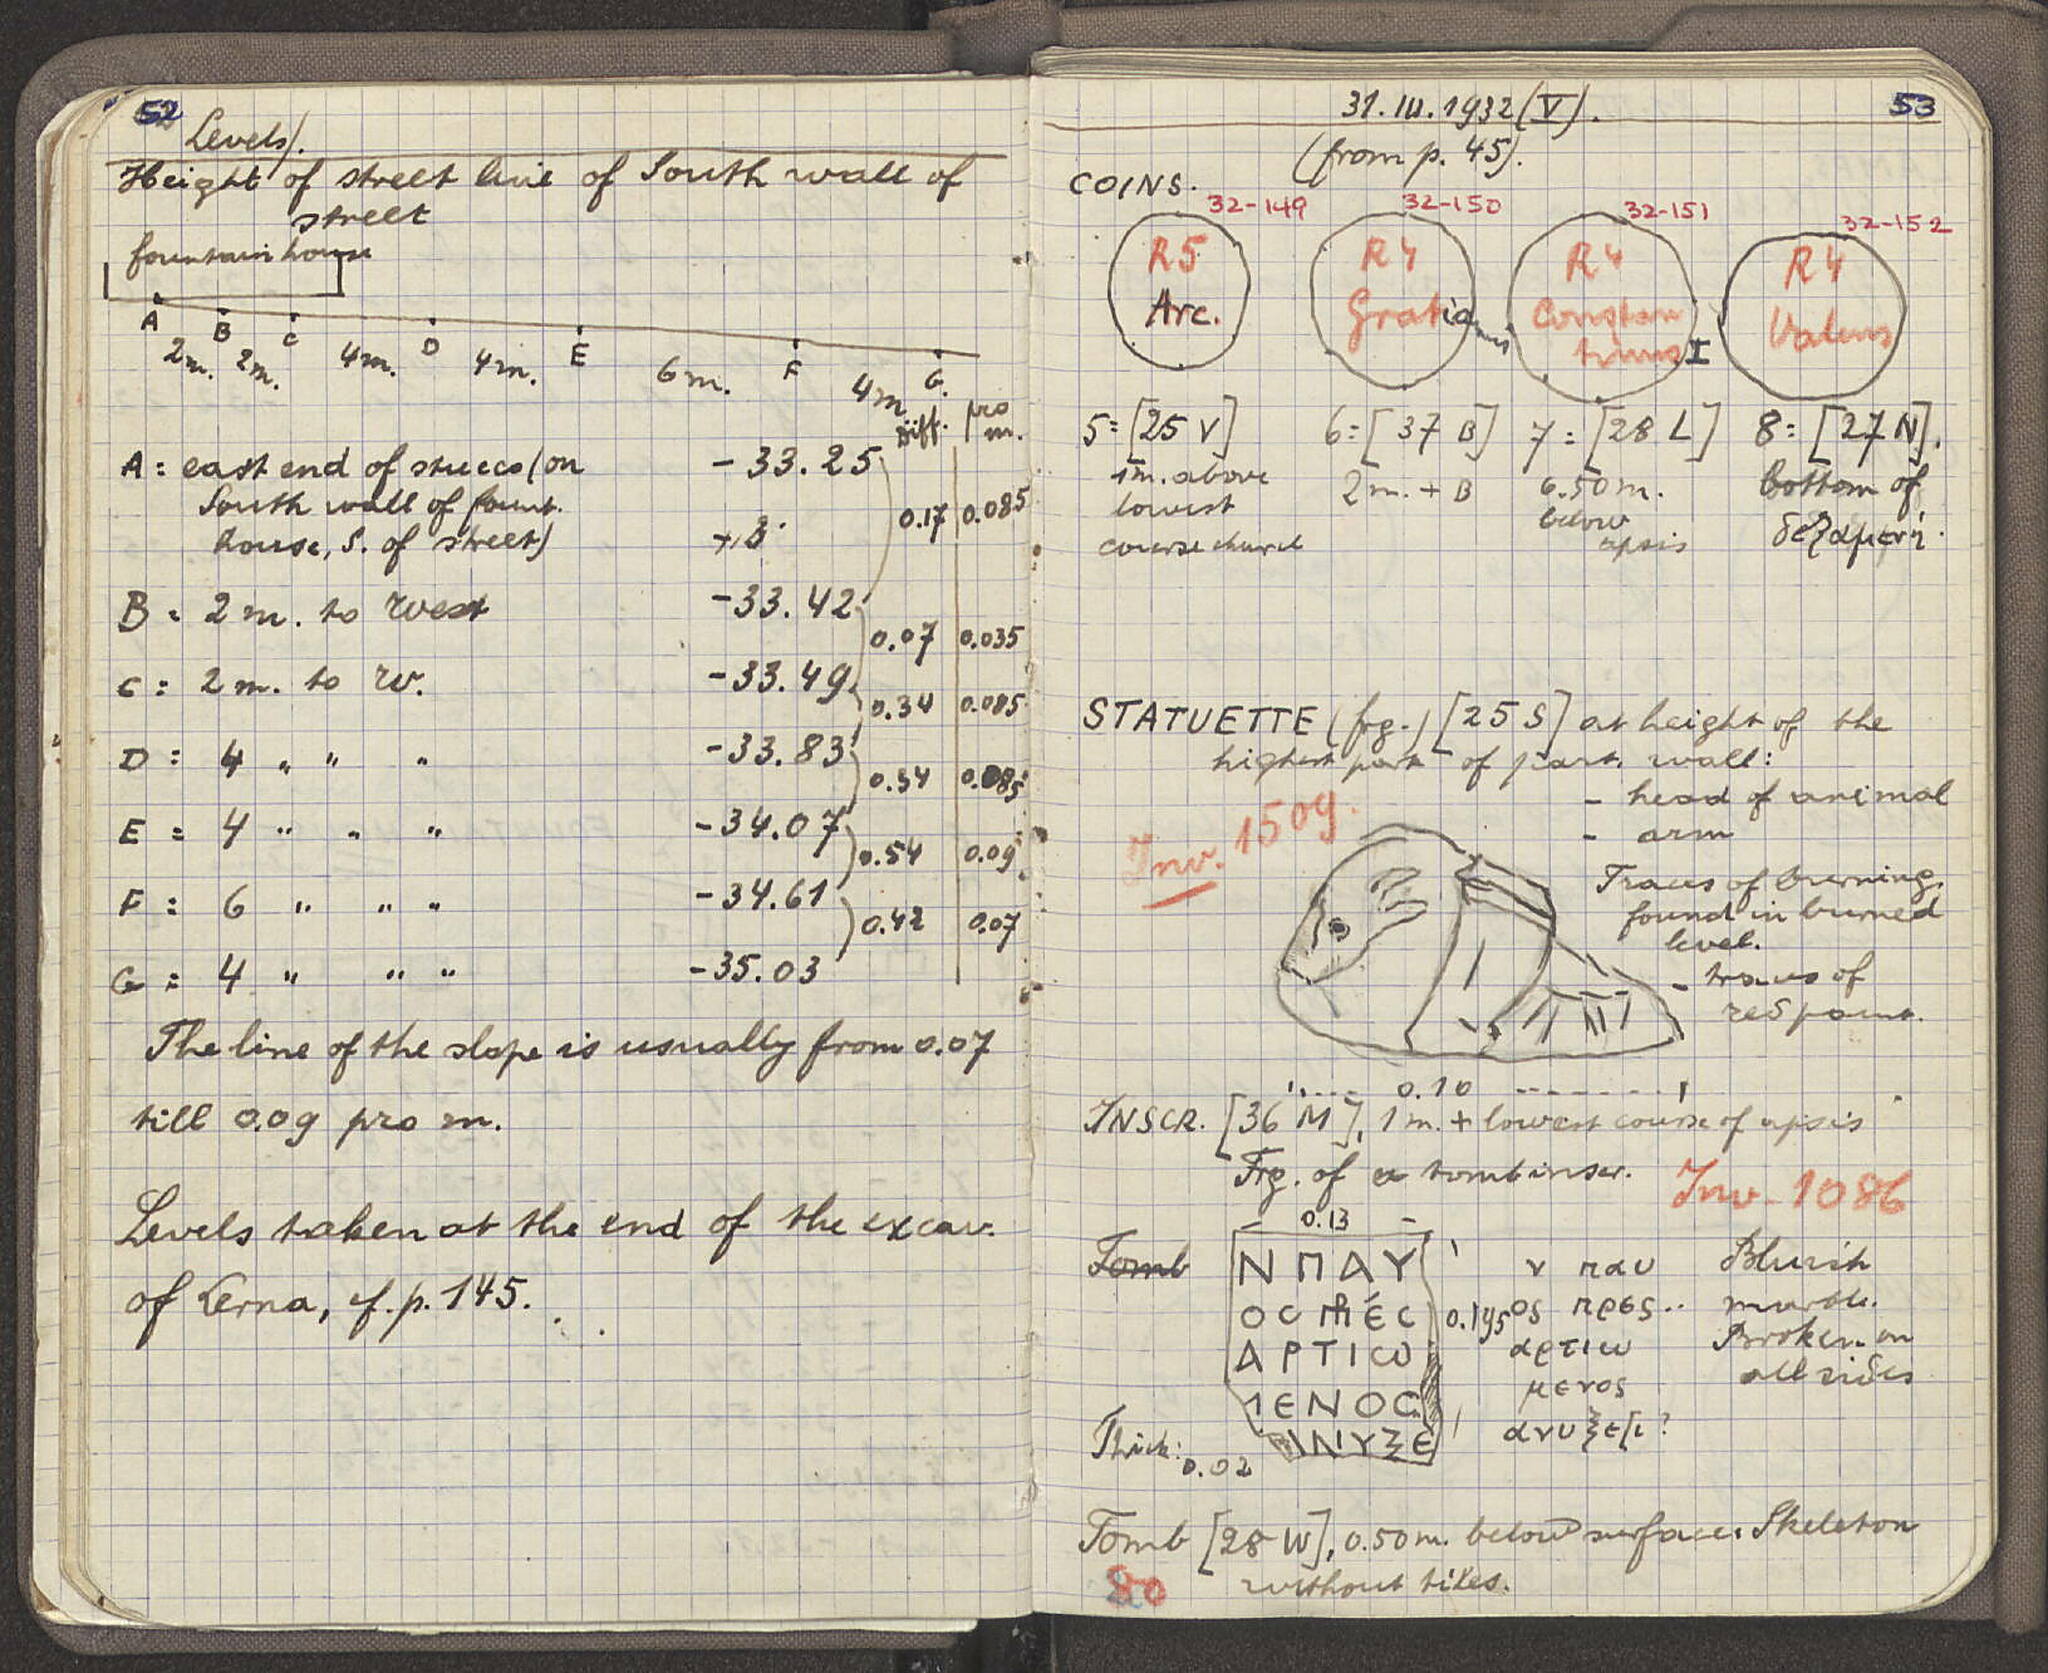 52
Levels).
Height of street line of South wall of
street
fountain house
A B C D E F G.
2m. 2m. 4m. 4m. 6m. 4m
Diff. pro m.
A = east end of stucco (on -33.25
South wall of fount.
house, S. of street)
0.17 0.085
B = 2 m. to west -33.42
0.07 0.035
C = 2 m. to w. -33.49
0.34 0.085
D = 4 " " " -33.83
0.34 0.085
E = 4 " " " -34.07
0.54 0.09
F = 6 " " " -34.61
0.42 0.07
G = 4 " " " -35.03
The line of the slope is usually from 0.07
till 0.09 pro m.
Levels taken at the end of the excav.
of Lerna, cf. p. 145.
31.III.1932 (V).
53
(from p. 45).
COINS.
32-149 32-150 32-151 32-152
R5 Arc.
R4 Gratianus
R4 Constantinus I
R4 Valens
5 = [25 V] 6 = [37 B] 7 = [28 L] 8 = [27 N].
1m. above
lowest
course church
2 m. + B
6.50 m.
below
apsis
bottom of
δεξαμενή.
STATUETTE (frg.) [25 S] at height of the
highest part of part. wall:
- head of animal
- arm
Inv. 1509.
Traces of burning,
found in burned
level.
- traces of
red paint.
0.10
INSCR. [36 M], 1 m. + lowest course of apsis
Frg. of a tombinscr. Inv. 1086
0.13
Tomb
ΝΠΑΥ
ΑΡΤΙω
ΙΕΝΟC
ΙΝΥΞΕ
0.195
ν παυ
ος πρες..
αρτιω
μενος
ανυξε[ι?
Bluish
marble.
Broken on
all sides
Thick:
0.02
Tomb [28 W], 0.50 m. below surface. Skeleton
80 without tiles.